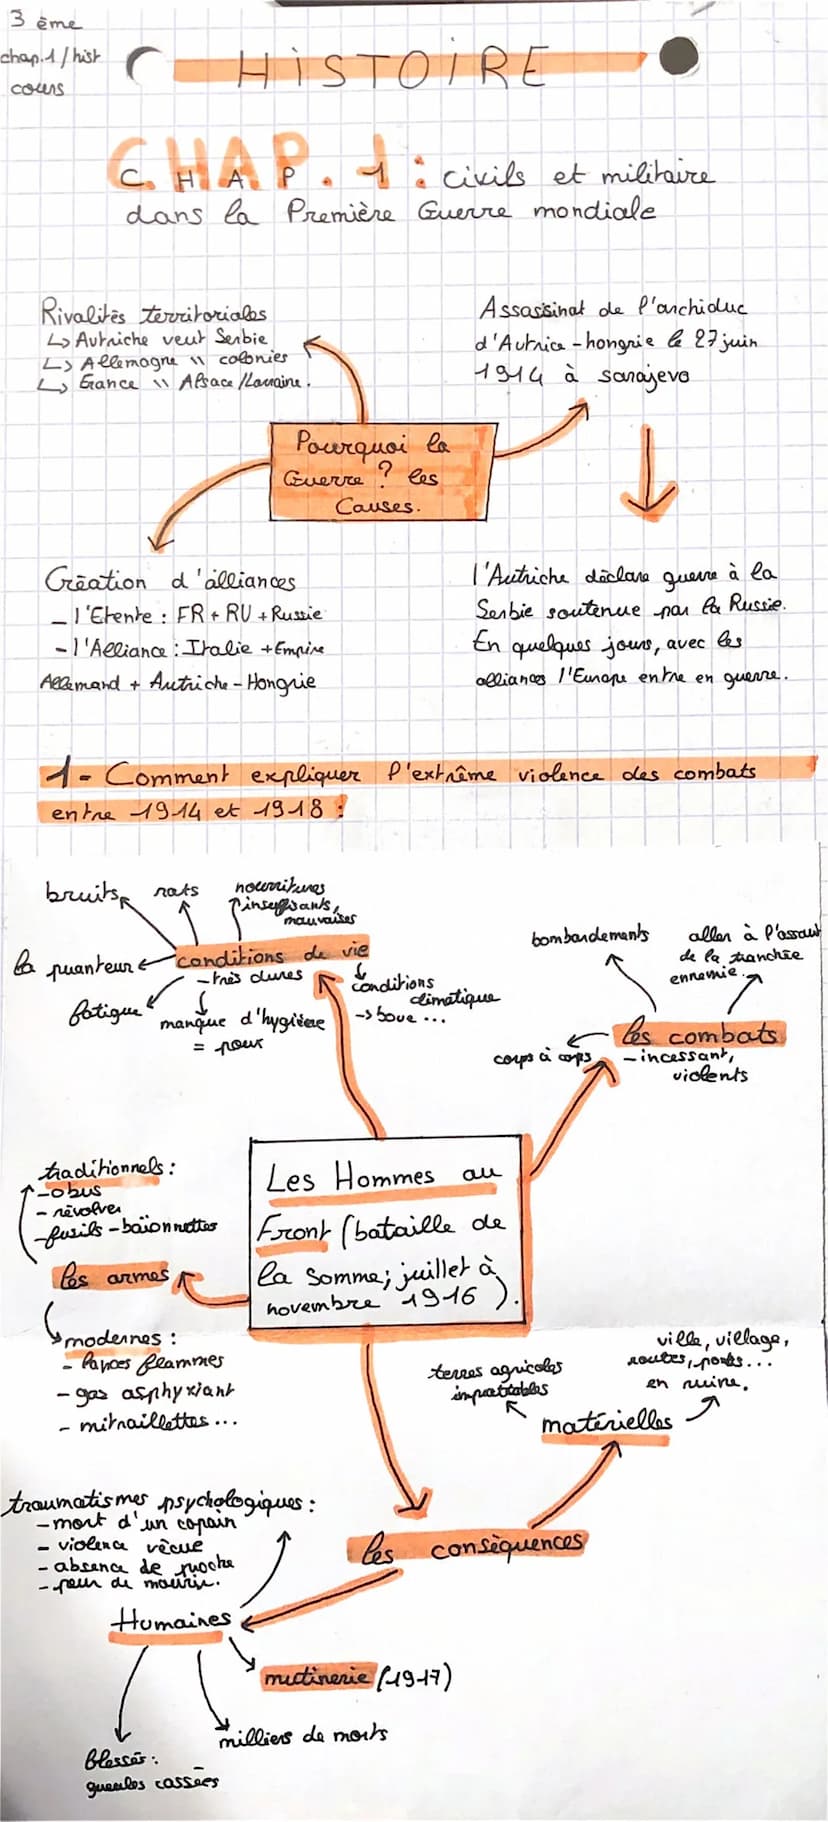 3 ème
chap.1/hist
cours
HiSTOiRE
CHAP. 1 : civils et militaire
dans la Première Guerre mondiale
Rivalités territoriales
↳ Autriche veut Serbie
↳ Allemagne \\ colonies
↳ France \\ Alsace/Lorraine.
Assassinat de l'archiduc
d'Autrice-hongrie le 27 juin
1914 à sarajevo
Pourquoi la
Guerre ? les
Causes.
Création d'alliances
- l'Etente : FR + RU + Russie
- l'Alliance : Italie + Empire
Allemand + Autriche-Hongrie
l'Autriche déclare guerre à la
Serbie soutenue par la Russie.
En quelques jours, avec les
alliances l'Europe entre en guerre.
1- Comment expliquer l'extrême violence des combats
entre 1914 et 1918 :
bruits
rats
nourritures
insuffisants,
mauvaises
la puanteur
conditions de vie
- très dures
fatigue
manque d'hygiène
= poux
conditions
climatique
-> boue ...
bombardements
aller à l'assaut
de la tranchée
ennemie.
les combats
- incessant,
violents
corps à corps
traditionnels :
- obus
- révolver
- fusils - baïonnettes
les armes
modernes :
- lances flammes
- gas asphyxiant
- mitraillettes ...
Les Hommes au
Front (bataille de
la Somme; juillet à
novembre 1916 ).
terres agricoles
impraticables
ville, village,
routes, ponts...
en ruine.
matérielles
les conséquences
traumatismes psychologiques :
- mort d'un copain
- violence vécue
- absence de proche
- peur de mourir.
Humaines
mutinerie (1917)
milliers de morts
Blessés :
gueules cassées